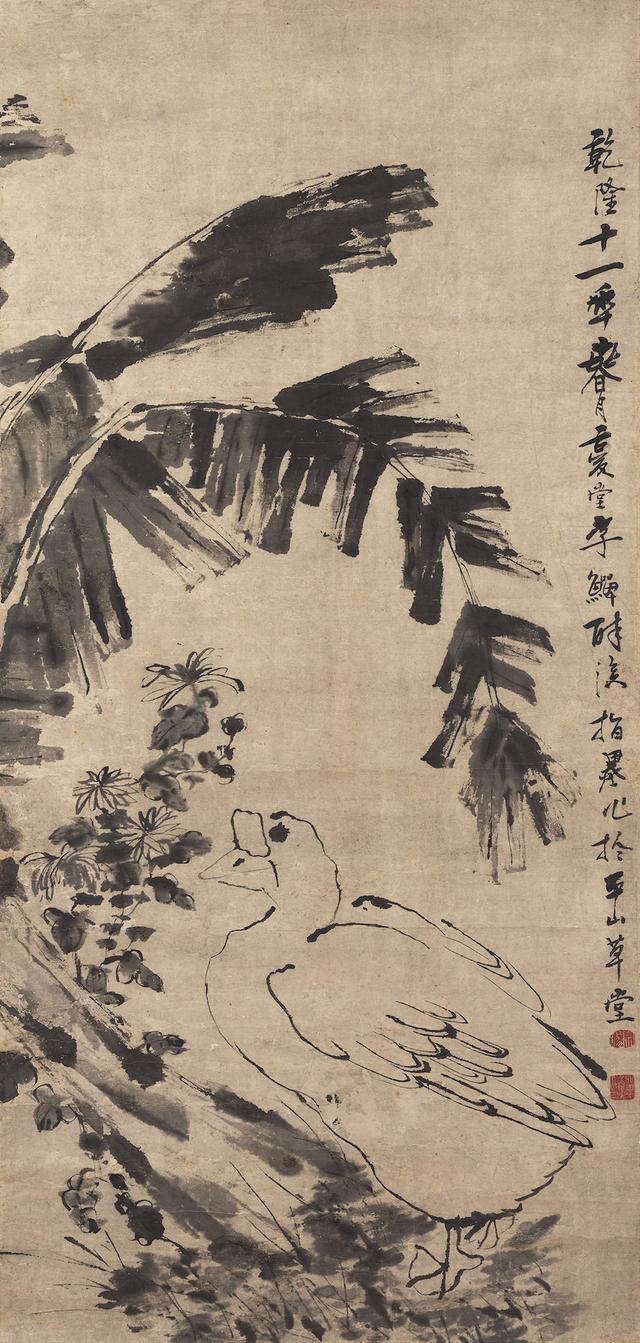 乾隆十一年春月复堂李鱓醉後指墨作於平山草堂